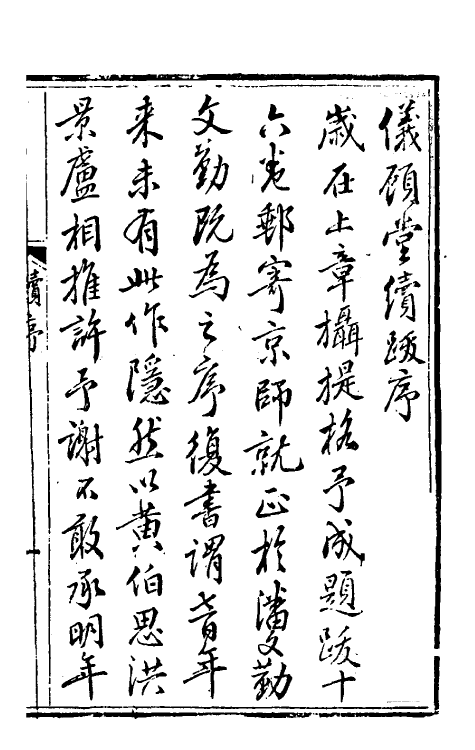 儀顧堂續跋序
歲在上章攝提格予成題跋十
六卷郵寄京師就正於潘文勤
文勤既為之序復書謂百年
来未有此作隱然以黃伯思洪
景盧相推許予謝不敢承明年
續序